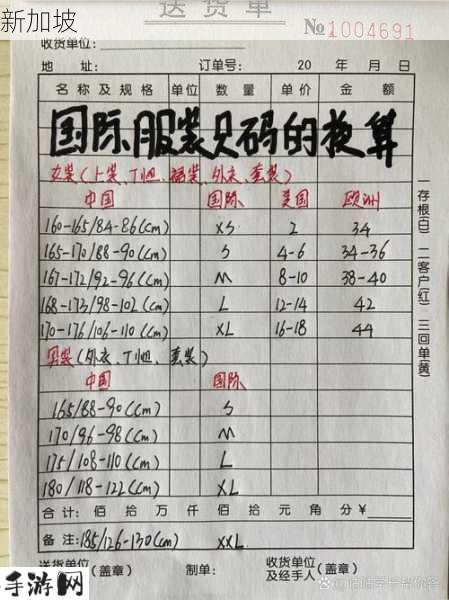 新加坡
送货单
№ 1004691
收货单位:
地 址: 订单号: 20 年 月 日
名称及规格 单位 数量 单价 金额
国际服装尺码的换算
女装(上装、T恤、裙装、外衣、套装)
中国 国际 美国 欧洲
160-165/84-86(cm) XS 2 34
165-170/88-90(cm) S 4-6 34-36
167-172/92-96(cm) M 8-10 38-40
168-173/98-102(cm) L 12-14 42
170-176/106-110(cm) XL 16-18 44
男装(外衣、T恤、套装)
中国 国际
165/88-90(cm) S
170/96-98(cm) M
175/108-110(cm) L
180/118-122(cm) XL
合计: 佰 拾 万 仟 佰 拾 元 角 分 ¥
备注:185/126-130(cm) XXL
送货单位(盖章) 制单: 收货单位及经手人(盖章)
一存根(白) 二客户(红) 三回单(黄)
手游网